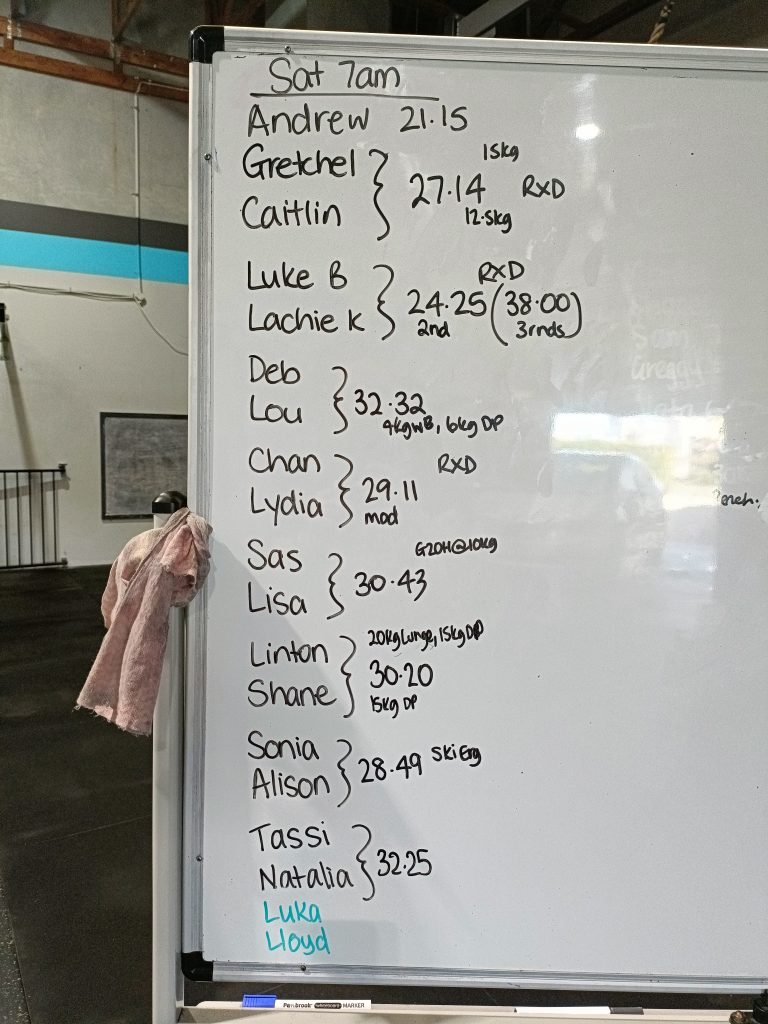 Sat 7am
Andrew 21.15
Gretchel
15kg
27.14 RXD
Caitlin
12.5kg
Luke B
RXD
24.25 (38.00)
Lachie K
2nd 3rnds
Deb
Lou
32.32
4kgWB, 6kg DP
Chan
RXD
29.11
Lydia
mod
Sas
G2OH@10kg
30.43
Lisa
Linton
20kg lunge, 15kg DP
30.20
Shane
15kg DP
Sonia
28.49 Ski Erg
Alison
Tassi
32.25
Natalia
Luka
Lloyd
MARKER